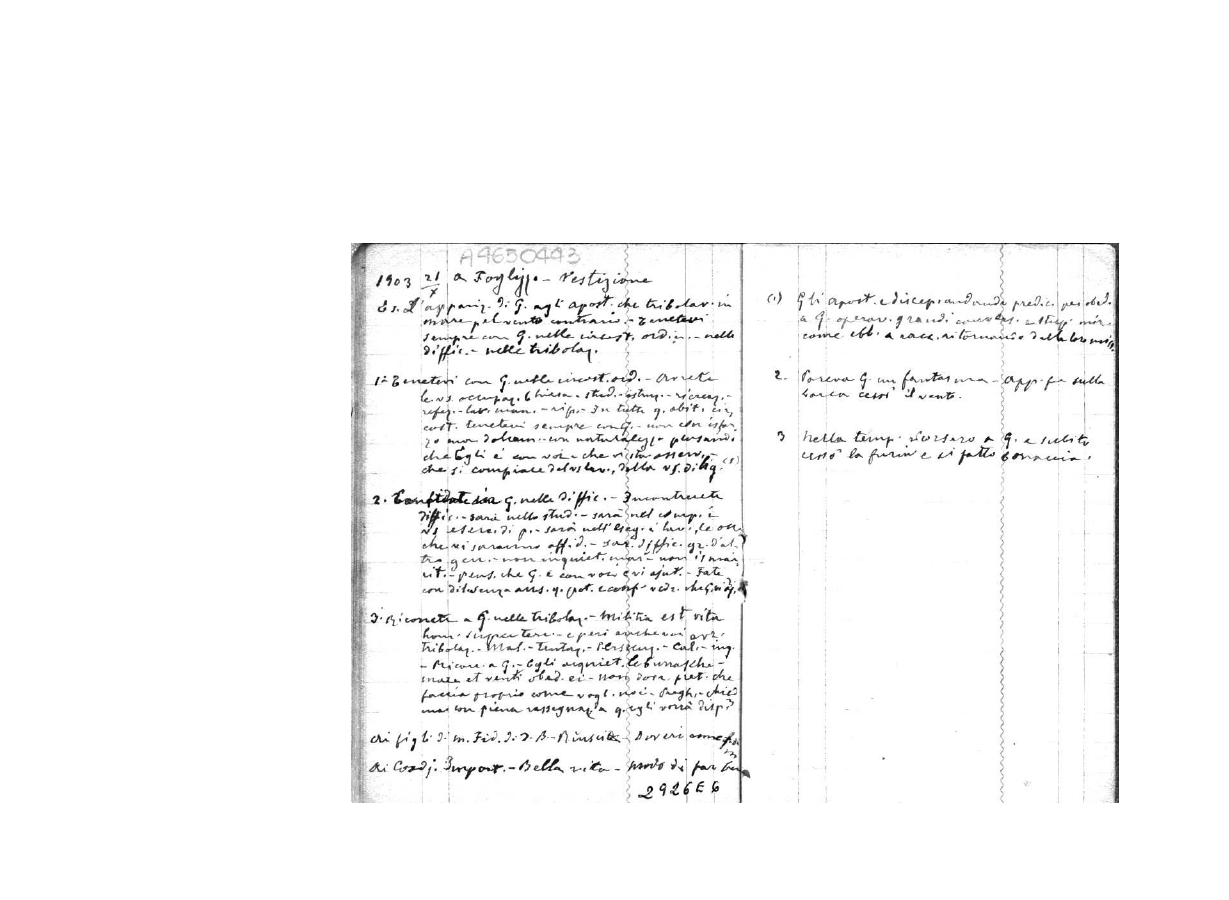 A4650493
1903 21/X a Foglizzo - Vestizione
Es. L'appariz. di G. agli apost. che tribolav. in
mare pel vento contrario. - Tenetevi
sempre con G. nelle circost. ordin. - nelle
diffic. - nelle tribolaz.
1º Tenetevi con G. nelle circost. ord. - Avrete
le vs. occupaz. Chiesa - stud. - - ricreaz. -
refez. - lav. man. - rip. - In tutte q. abit. cir
cost. tenetevi sempre con G. - non con isfor
zo ma con naturalezza pensando
che Egli è con voi - che vi sta osserv. -
che si compiace del vs lav., della vs. dilig. (1)
2. G. nelle diffic. - Incontrerete
diffic. - sarà nello stud. - sarà nell comp. i
vs. eserc. di p. - sarà nell'eseg. i lav.,
che vi saranno affid. - sar. diffic. d'al
tro gen. - non inquiet. mai - non
rit. - pens. che G. è con voi e vi ajut. - Fate
con
3. Ricorrete a G. nelle tribolaz. - Militia est vita
hom. super terr. - e però anche voi avr.
tribolaz. - Mal. - Tentaz. - Persecuz. - Cal. - ing.
- Ricorr. a G. - Egli acquiet. le burrasche -
mare et venti obed. ei - Non dov. pret. che
faccia proprio come vogl. noi - Pregh. - chied
ma con piena rassegnaz. a q. egli vorrà disp.
Ai figli di m. Fid. di D. B. - - Doveri come
Ai Coadj. Import. - Bella vita - modo di far
2926E6
(1) Gli apost. e discep. andando predic. per obed.
a G. operav. grandi convers. e mir.
come ebb. a racc. ritornando dalla loro miss.
2. Pareva G. un fantasma - App. fu sulla
barca cessò il vento.
3 Nella temp. ricorsero a G. e subito
cessò la furia e si fatto bonaccia.